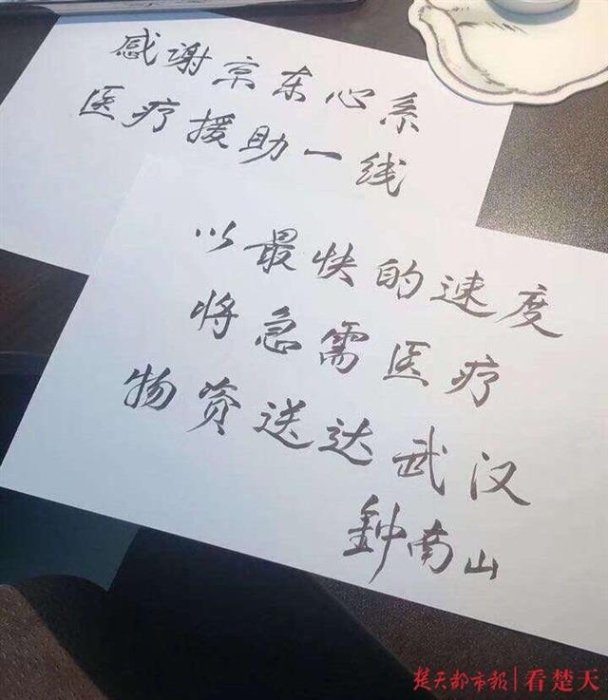 感谢京东心系
医疗援助一线
以最快的速度
将急需医疗
物资送达武汉
鍾南山
楚天都市报|看楚天